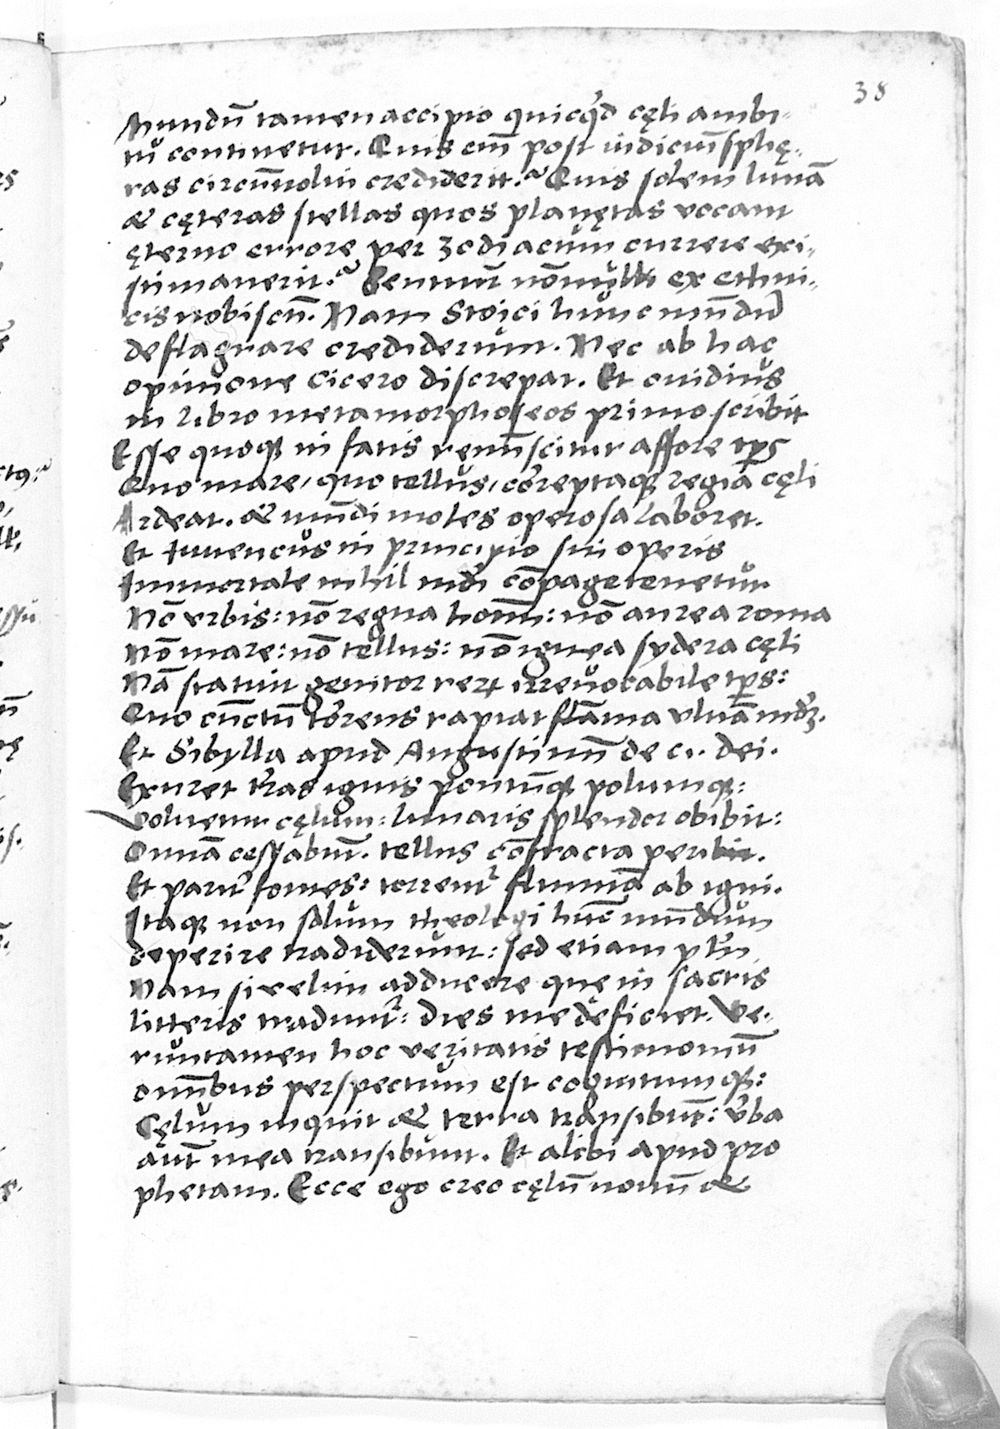 38
Mundũ tamen accipio quicq'd cęli ambi-
tu continetur. Quis em̃ post iudiciũ sphę-
ras circũuolui crediderit? Quis solem lunã
& cęteras stellas quos planętas vocant
ęterno errore per zodiacum currere exi-
stimauerit? Sentiunt nõnulli ex ethni-
cis nobiscũ. Nam Stoici hunc mũdũ
deflagrare crediderunt. Nec ab hac
opinione Cicero discrepat. Et ouidius
in libro metamorphoseos primo scribit
Esse quoq; in fatis reminiscitur affore tp̃s
Quo mare, quo tellus, correptaq; regia cęli
Ardeat. & mũdi moles operosa laboret.
Et Iuuencus in principio sui operis
Immortale nihil mũdi cõpage tenetur
Nõ vrbis: nõ regna hoım̃: nõ aurea roma
Nõ mare: nõ tellus: nõ ignea sydera cęli
Nã statuit genitor reꝝ irreuocabile tp̃s:
Quo cũctũ torrens rapiat flãma vltiã mũdũ.
Et Sibylla apud Augustinũ de ci. dei.
Exuret tr̃as ignis pontũq; polumq;:
Voluetur cęlum: lunaris splendor obibit:
Omnia cessabũt. tellus cõfracta peribit.
Et pariť fontes: torrent' flumina ab igni.
Itaq; non solum theologi hũc mũdum
deperire tradiderunt: sed etiam
Nam si velim adducere quę in sacris
litteris tradunt': dies me deficiet. Ve-
runtamen hoc veritatis testimoniũ
omnibus perspectum est cognitumq;:
Cęlum inquit & terra transibũt: v'ba
aut̃ mea transibunt. Et alibi apud pro
phetam. Ecce ego creo cęlũ nouũ &